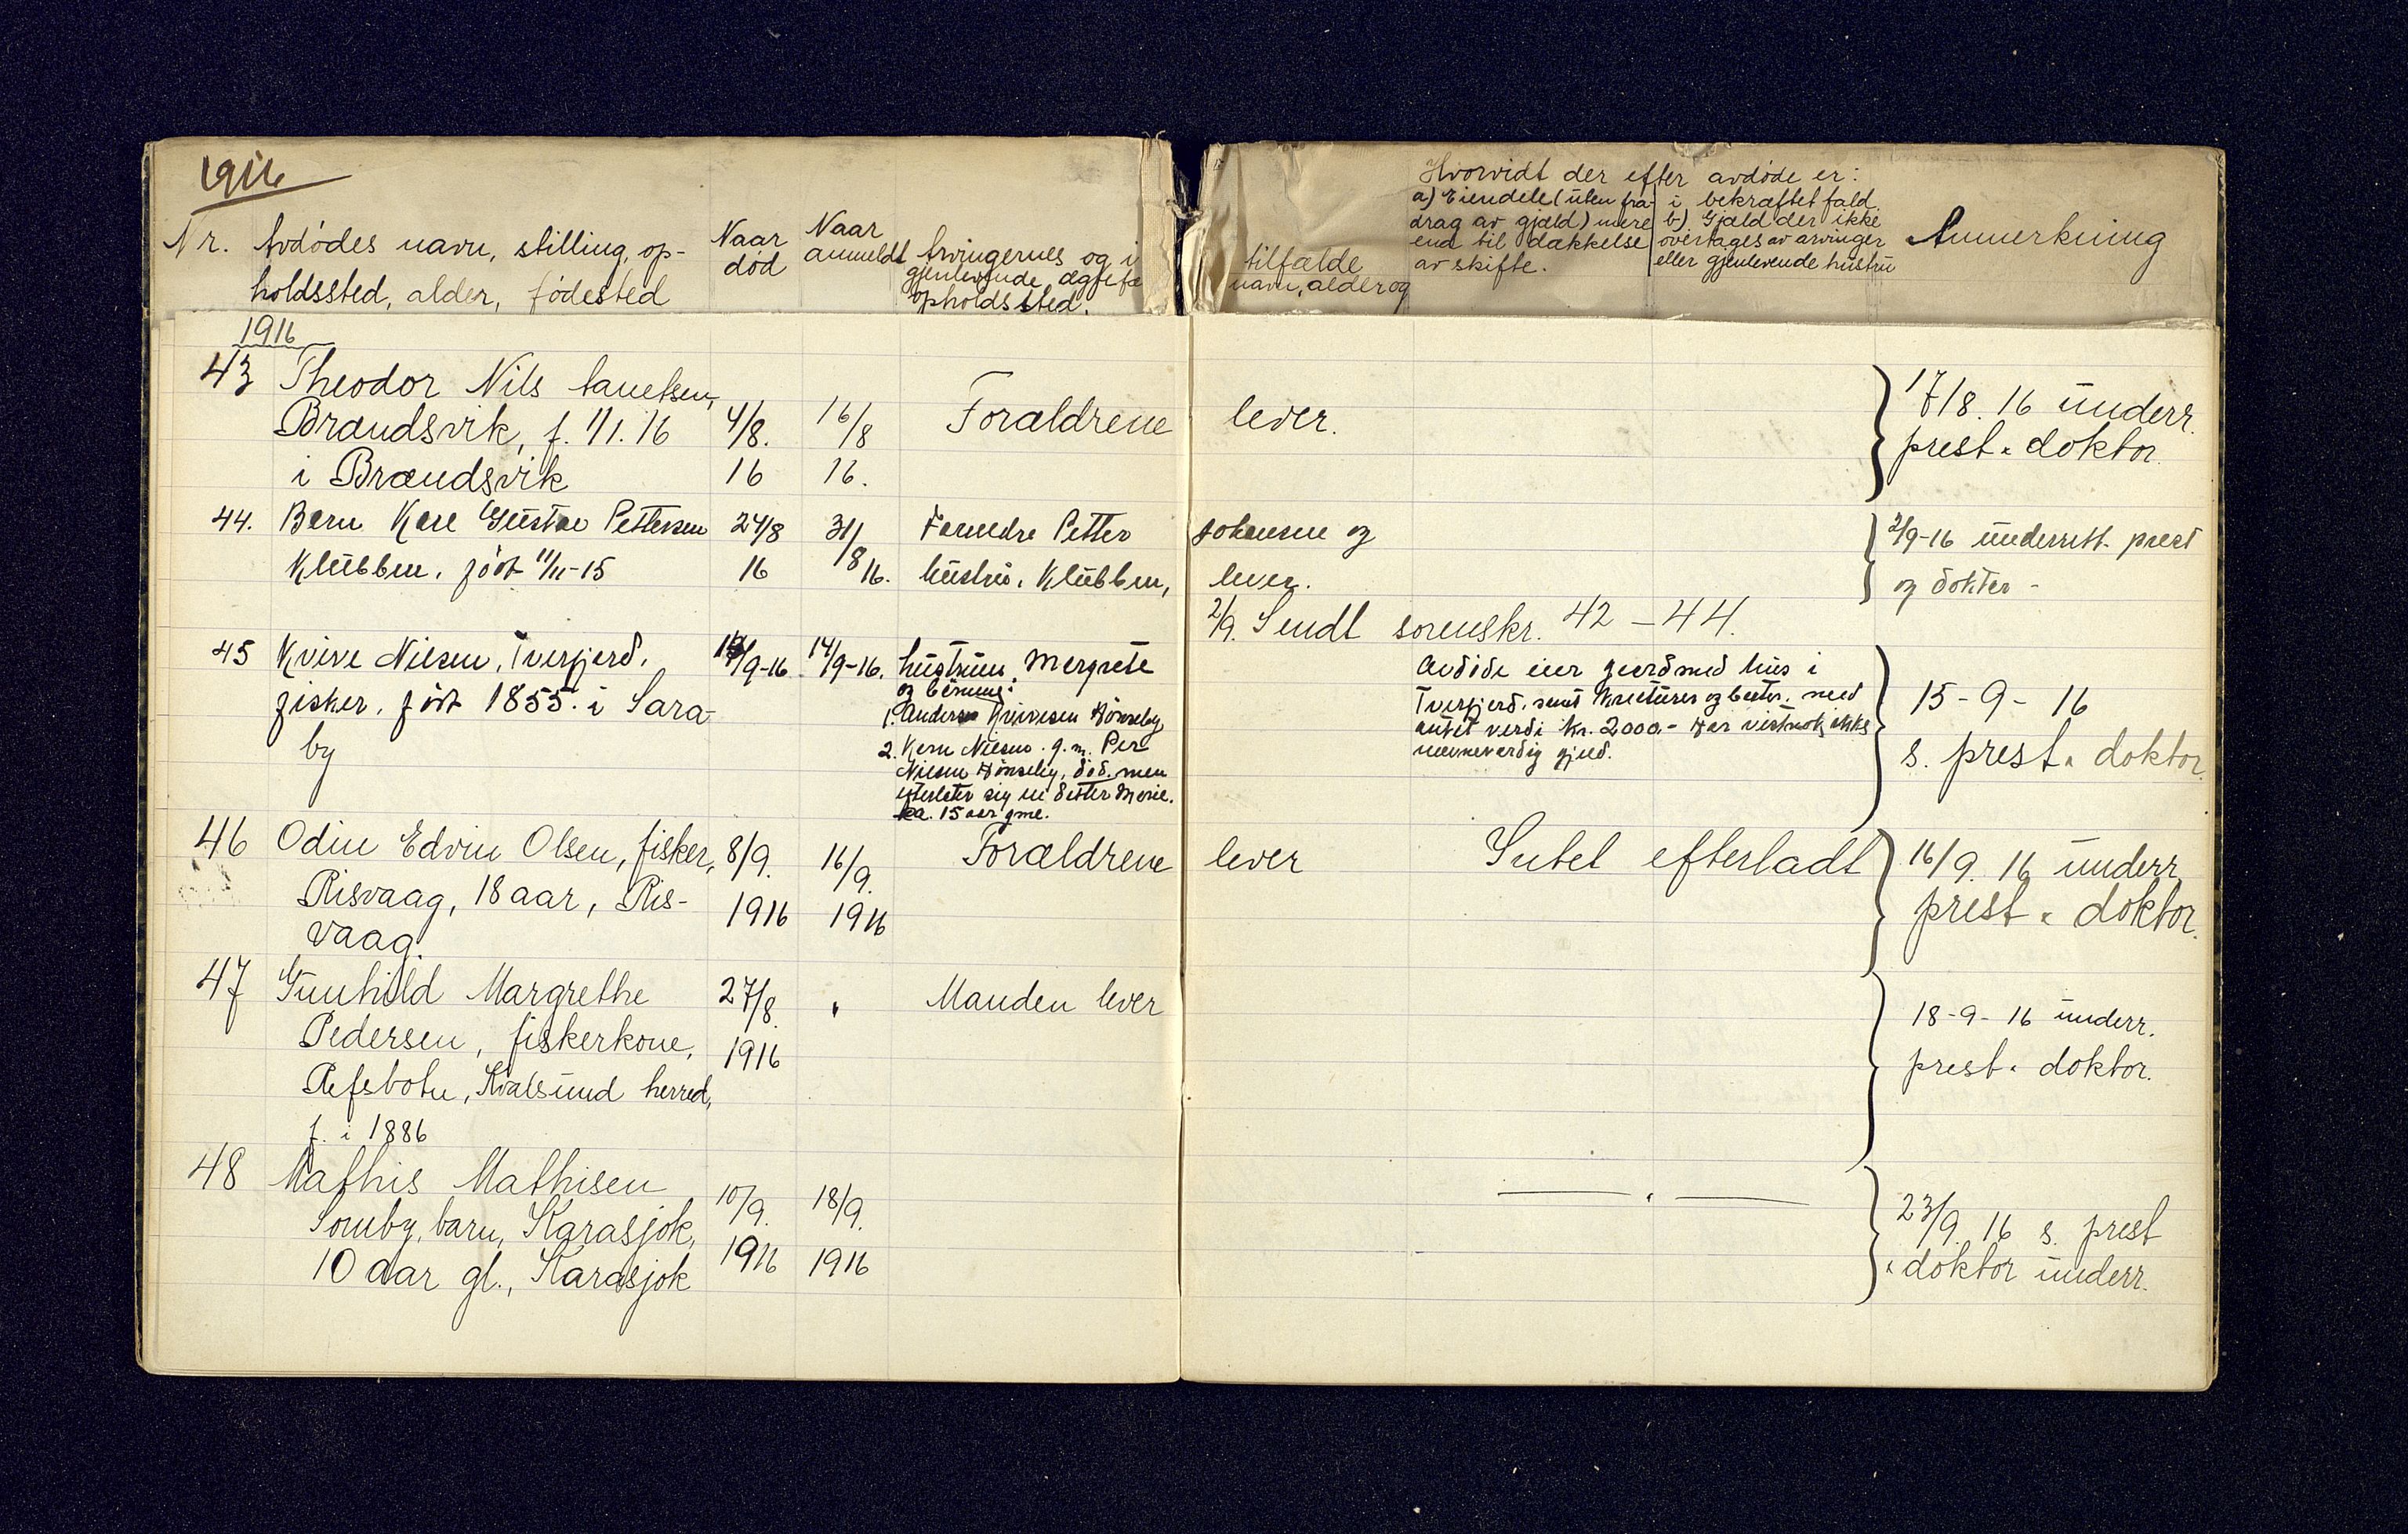 1916
Nr. Avdødes navn, stilling, op-
holdssted, alder, fødested
Naar
død
Naar
anmeldt
Arvingernes og i
gjenlevende ægtefæ
opholdssted.
tilfælde
navn, alder og
Hvorvidt der efter avdøde er:
a) Eiendele (uten fra-
drag av gjæld) mere
end til dækkelse
av skifte.
i bekræftet fald.
b) Gjæld der ikke
overtages av arvinger
eller gjenlevende hustru
Anmerkning
1916
43 Theodor Nils
Brændsvik, f. 1/1. 16
i Brændsvik
4/8.
16
16/8
16.
Forældrene lever.
17/8. 16 underr.
prest " doktor.
44. Barn Kare Gustav Pettersen
Klubben, født 11/11-15
24/8
16
31/8
16.
Forældre Petter Johansen og
hustru, Klubben, lever.
2/9-16 underrett. prest
og doktor -
2/9. Sendt sorenskr. 42 - 44.
45 Kvive Nilsen, Tverfjord,
fisker, født 1855. i Sara-
by
/9-16
14/9-16.
hustruen, Margrete
og børnene:
1. Anders Kvivesen Hønseby
2. Karn Nilsen g. m. Per
Nilsen Hønseby, død. men
efterlater sig en datter Marie.
ca. 15 aar gml.
Avdøde eier gaard med hus i
Tverfjord, samt kreaturer og baater. med
antat verdi kr. 2000.- Har vistnok ikke
nævneverdig gjæld.
15 - 9 - 16
s. prest " doktor.
46 Odin Edvin Olsen, fisker,
Risvaag, 18 aar, Ris-
vaag.
8/9.
1916
16/9.
1916
Forældrene lever
Intet efterladt
16/9. 16 underr.
prest " doktor.
47 Gunhild Margrethe
Pedersen, fiskerkone,
Refsbotn, Kvalsund herred,
f. i 1886
27/8.
1916
"
Manden lever
18-9-16 underr.
prest " doktor.
48 Mathis Mathisen
Somby, barn, Karasjok,
10 aar gl., Karasjok
10/9.
1916
18/9.
1916
— " —
23/9. 16 s. prest
" doktor underr.